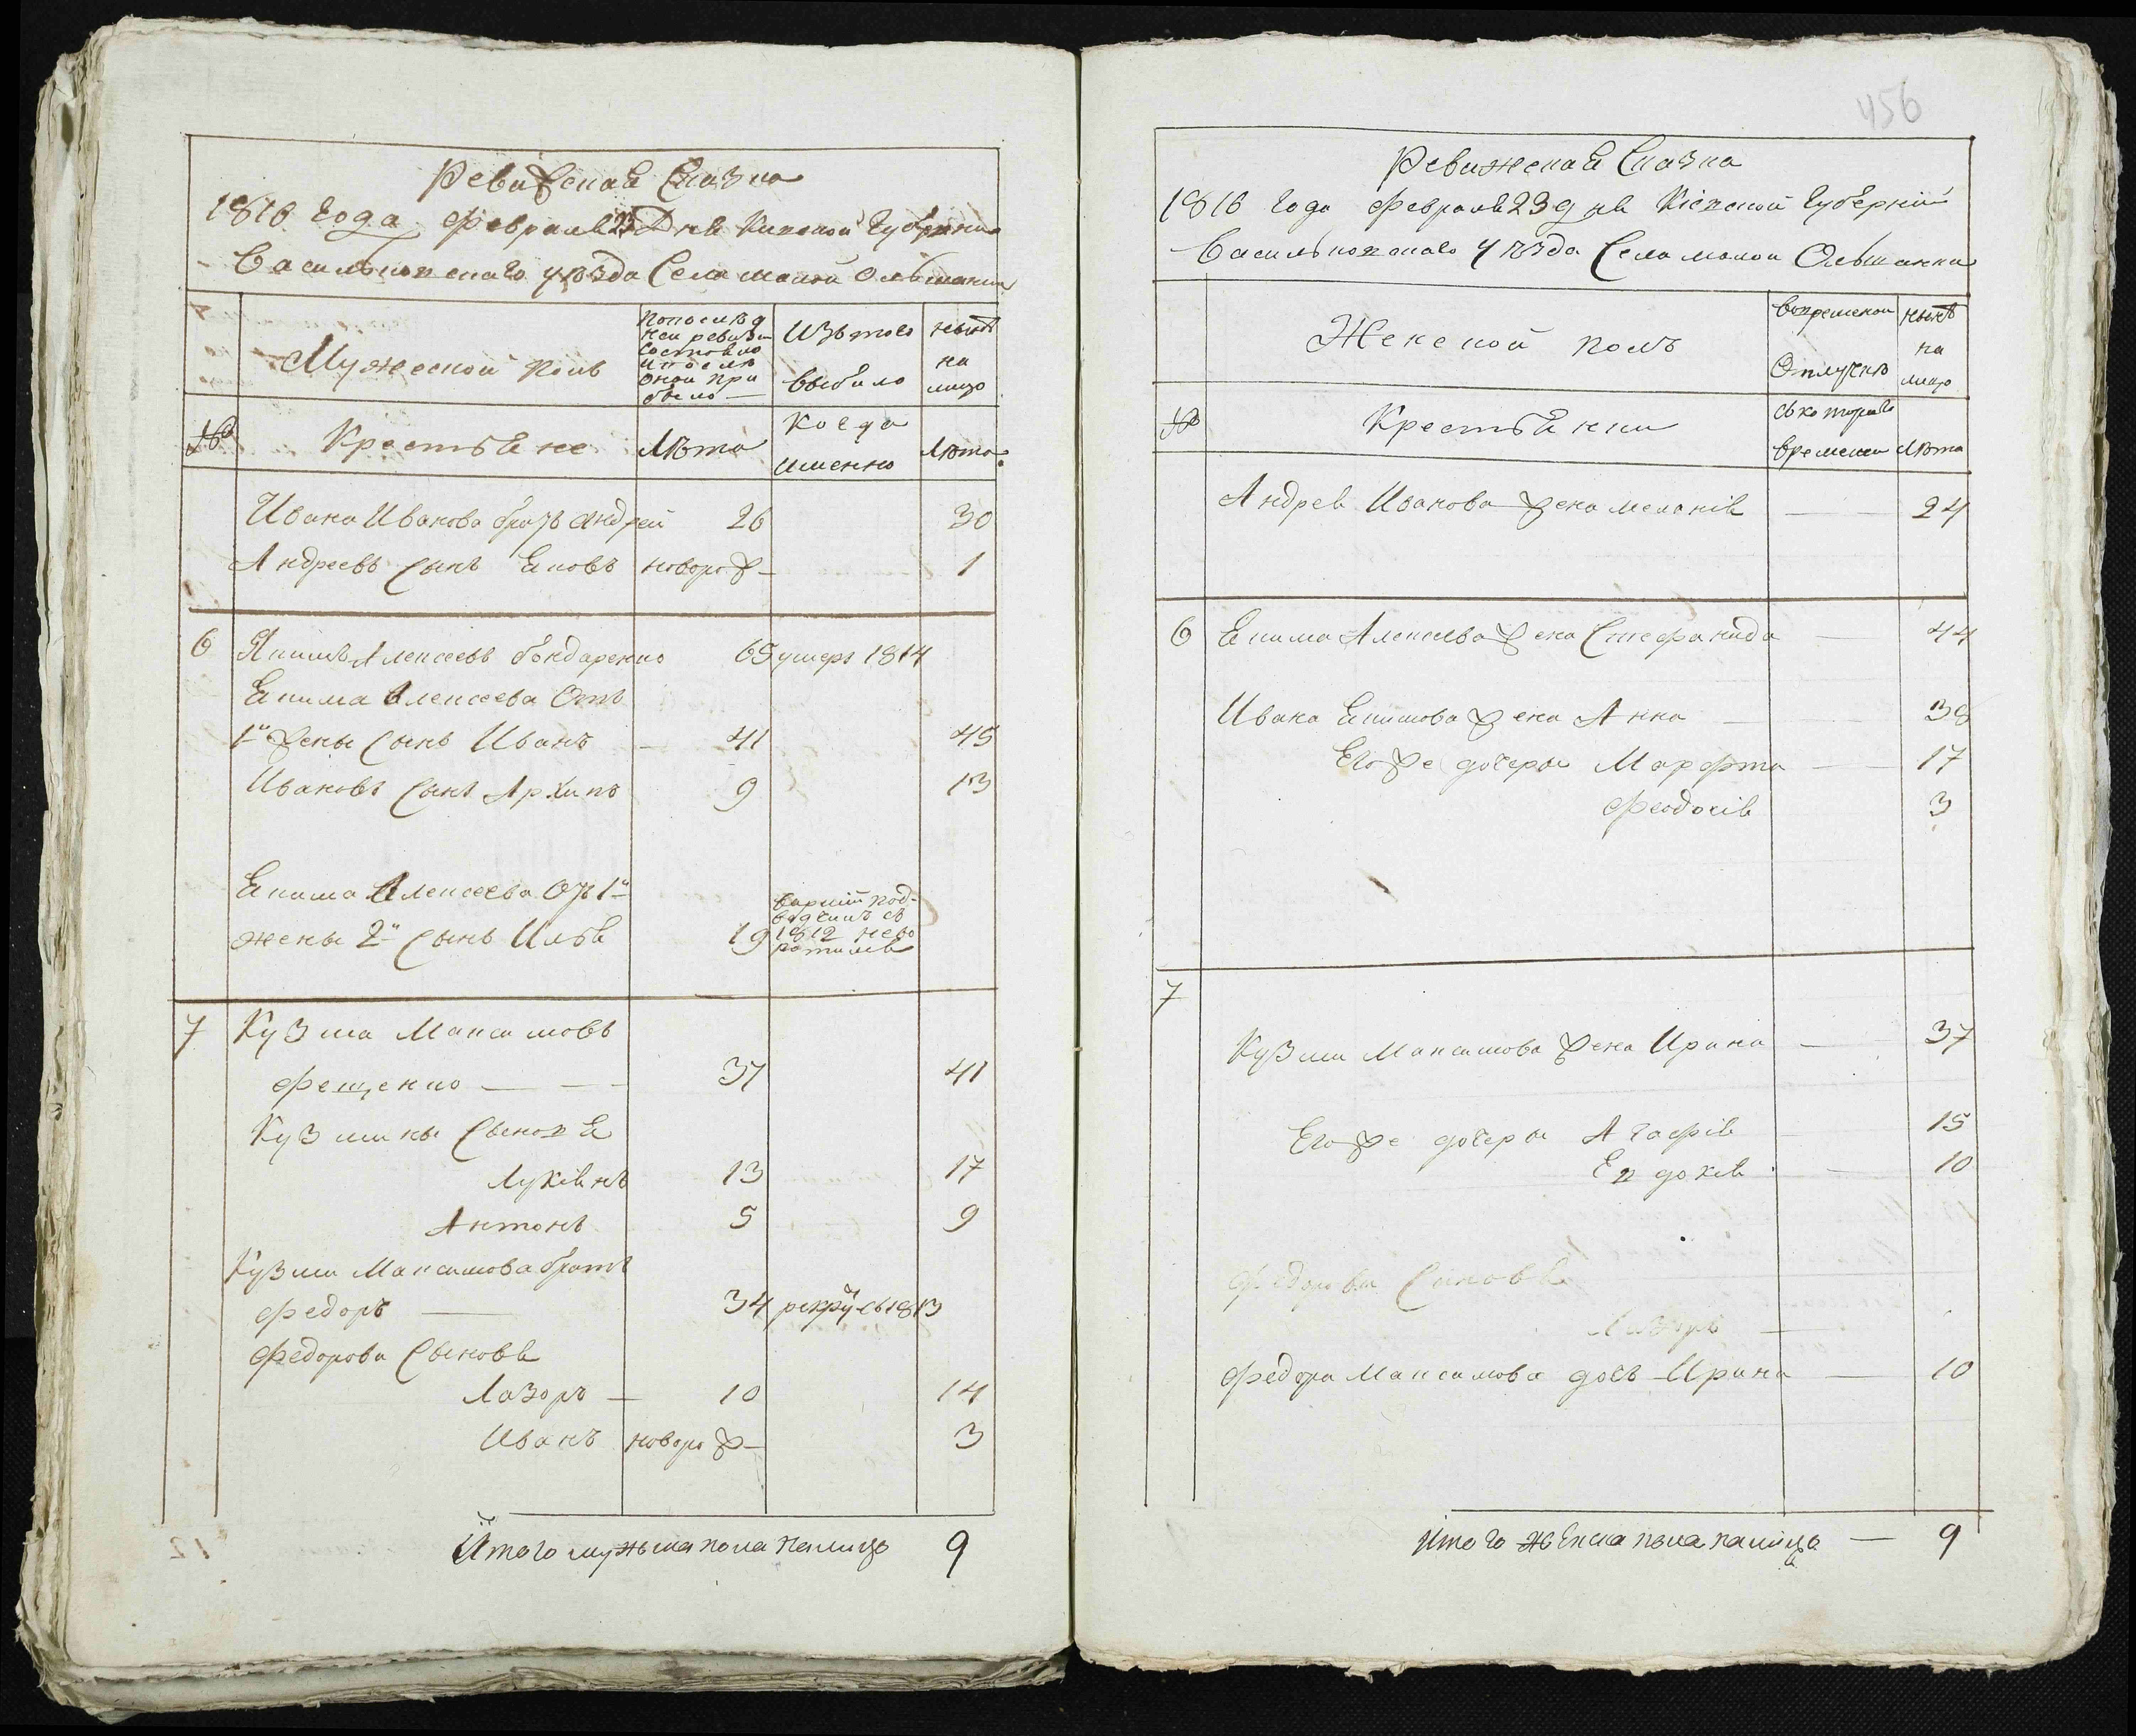 Ревижская Сказка
1816 года Февраля 23 Дня Киевской Губернии
Васильковскаго уѣзда Села малой Ольшанки
Мужеской полъ
Попослѣд
ней ревизіи
Состояло
и послѣ
оной при
было
Изъ того
выбыло
нынѣ
на
лицо
№
Крестьяне
Лѣта
Когда
именно
Лѣта
Ивана Иванова братъ андрей 26 30
Андреевъ Сынъ Яковъ новорож- 1
6 Якимъ Алексеевъ бондаренко 65 умеръ 1814
Якима Алексеева Отъ
1й жены Сынъ Иванъ 41 45
Ивановъ Сынъ Архипъ 9 13
Якима Алексеева Отъ 1й
жены 2й Сынъ Илья 19
1812 нево
ротился
7 Кузма Максимовъ
Фещенко 37 41
Кузмины Сыновя
Лукіянъ 13 17
Антонъ 5 9
Кузми Максимова братъ
Федоръ 34 рекру съ 1813
Федорови Сыновя
Лазоръ 10 14
Иванъ новорож- 3
Итого мужьска пола налицо 9
456
Ревижская Сказка
1816 года Февраля 23 дня Кіевской Губерніи
Васильковскаго Уѣзда Села малой Ольшанки
Женской полъ
вовременой
Отлучкѣ
нынѣ
на
лицо
№
Крестьянки
съкотораго
времени
Лѣта
Андрея Иванова жена меланія 24
6 Якима Алексеева жена Стефанида 44
Ивана Якимова жена Анна 38
Егоже дочеры Марфта 17
Феодосія 3
7
Кузми Максимова жена Ирина 37
Егоже дочеры Агафія 15
Евдокія 10
Федорови Сыновя
Лазоръ
Федора Максимова дочь Ирина 10
Итого женска пола налицо 9